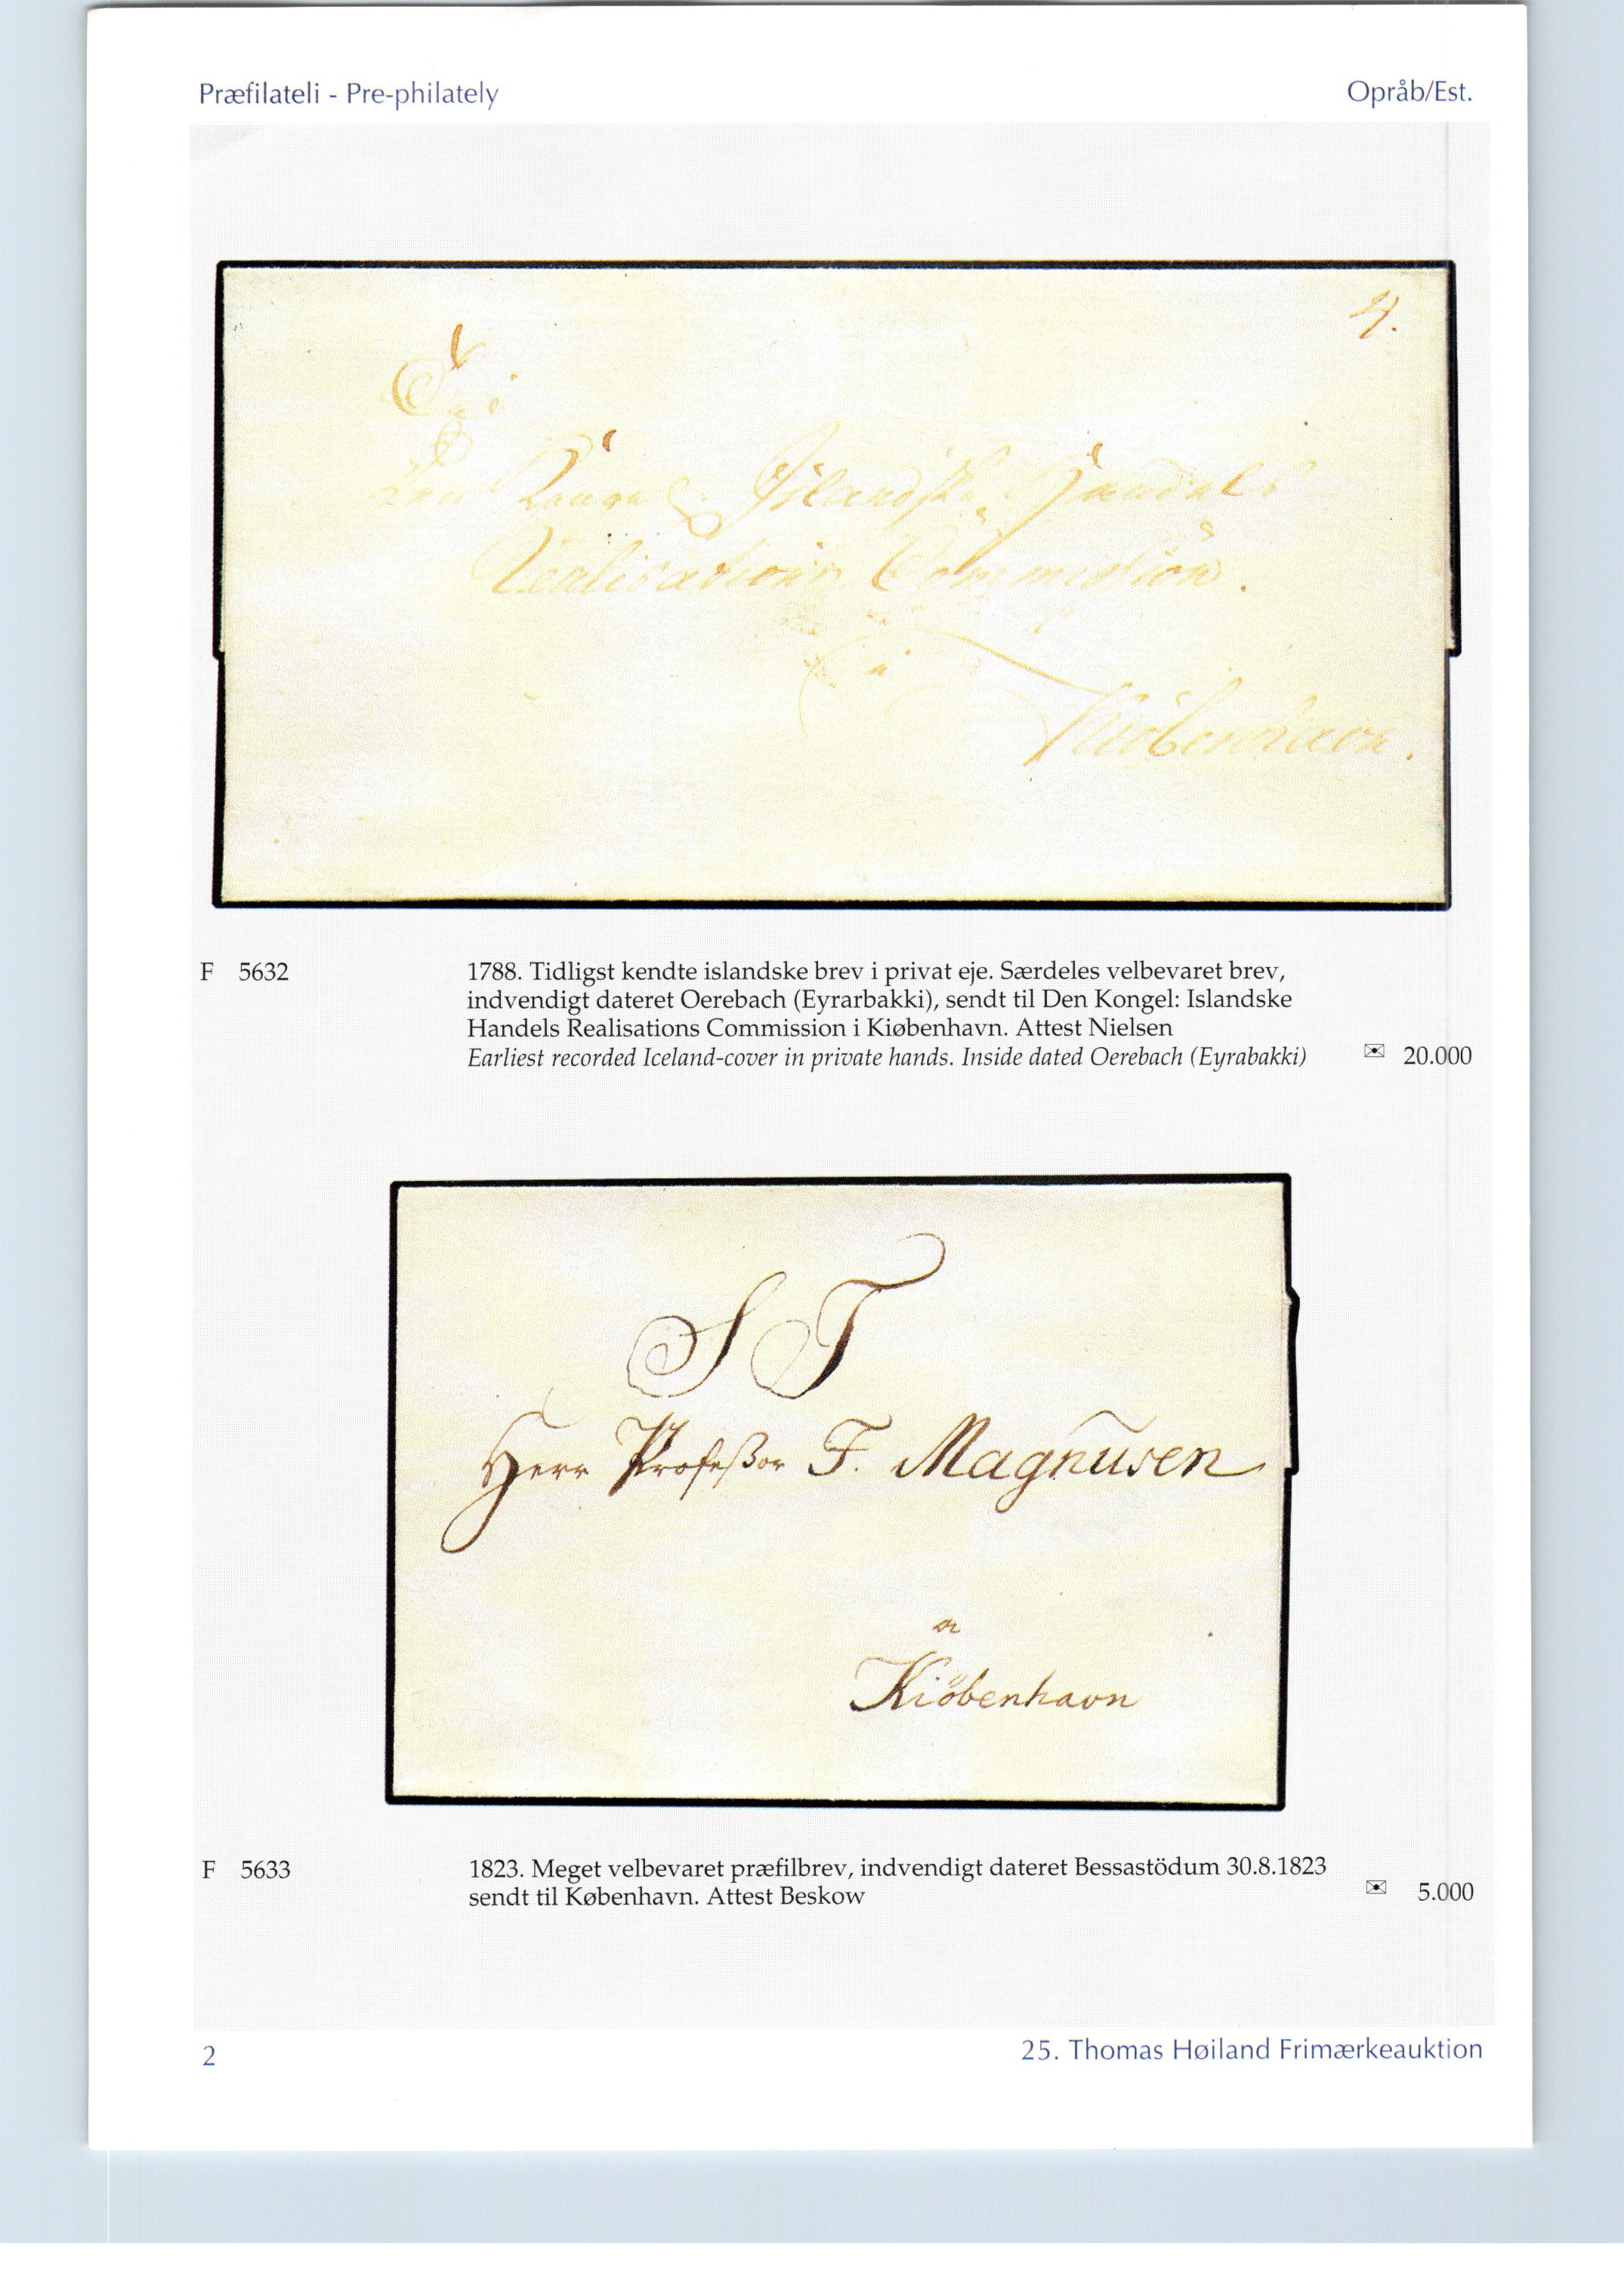 Præfilateli - Pre-philately
Opråb/Est.
4.
Islandske Handels
Realisations Commission.
i
Kiöbenhavn.
F 5632
1788. Tidligst kendte islandske brev i privat eje. Særdeles velbevaret brev,
indvendigt dateret Oerebach (Eyrarbakki), sendt til Den Kongel: Islandske
Handels Realisations Commission i Kiøbenhavn. Attest Nielsen
Earliest recorded Iceland-cover in private hands. Inside dated Oerebach (Eyrabakki)
✉ 20.000
S T
Herr Profeßor F. Magnusen
a
Kiöbenhavn
F 5633
1823. Meget velbevaret præfilbrev, indvendigt dateret Bessastödum 30.8.1823
sendt til København. Attest Beskow
✉ 5.000
2
25. Thomas Høiland Frimærkeauktion